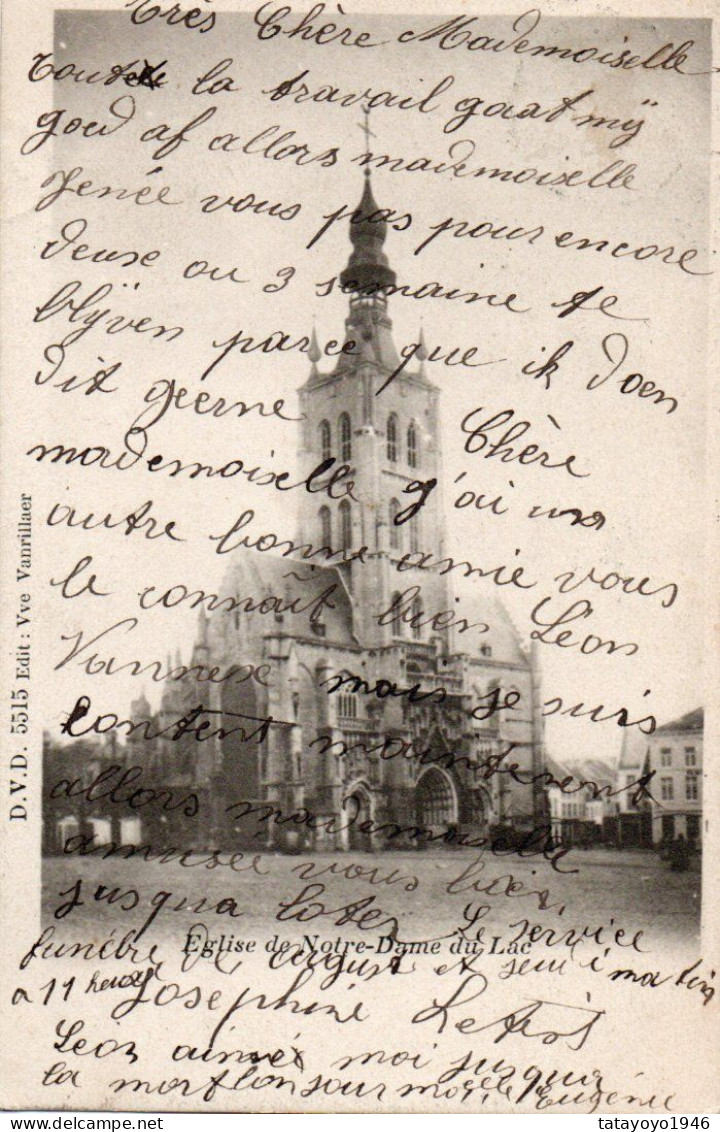 Très Chère Mademoiselle
toute la travail gaat mÿ
goed af allors mademoiselle
Jenée vous pas pour encore
deuse ou 3 semaine te
blÿven parce que ik doen
dit geerne Chère
mademoiselle j'ai un
autre bonne amie vous
le connaît bien Léon
Vannesse mais je suis
content maintenent
allors mademoiselle
amusée vous bien
jusqua lotes Le service
funébre De August et seudi matin
a 11 heures
Josephine
Leon aimée moi jusqua
la mort bonjour
Eugénie
Eglise de Notre-Dame du Lac
D.V.D. 5515 Edit : Vve Vanrillaer
tatayoyo1946